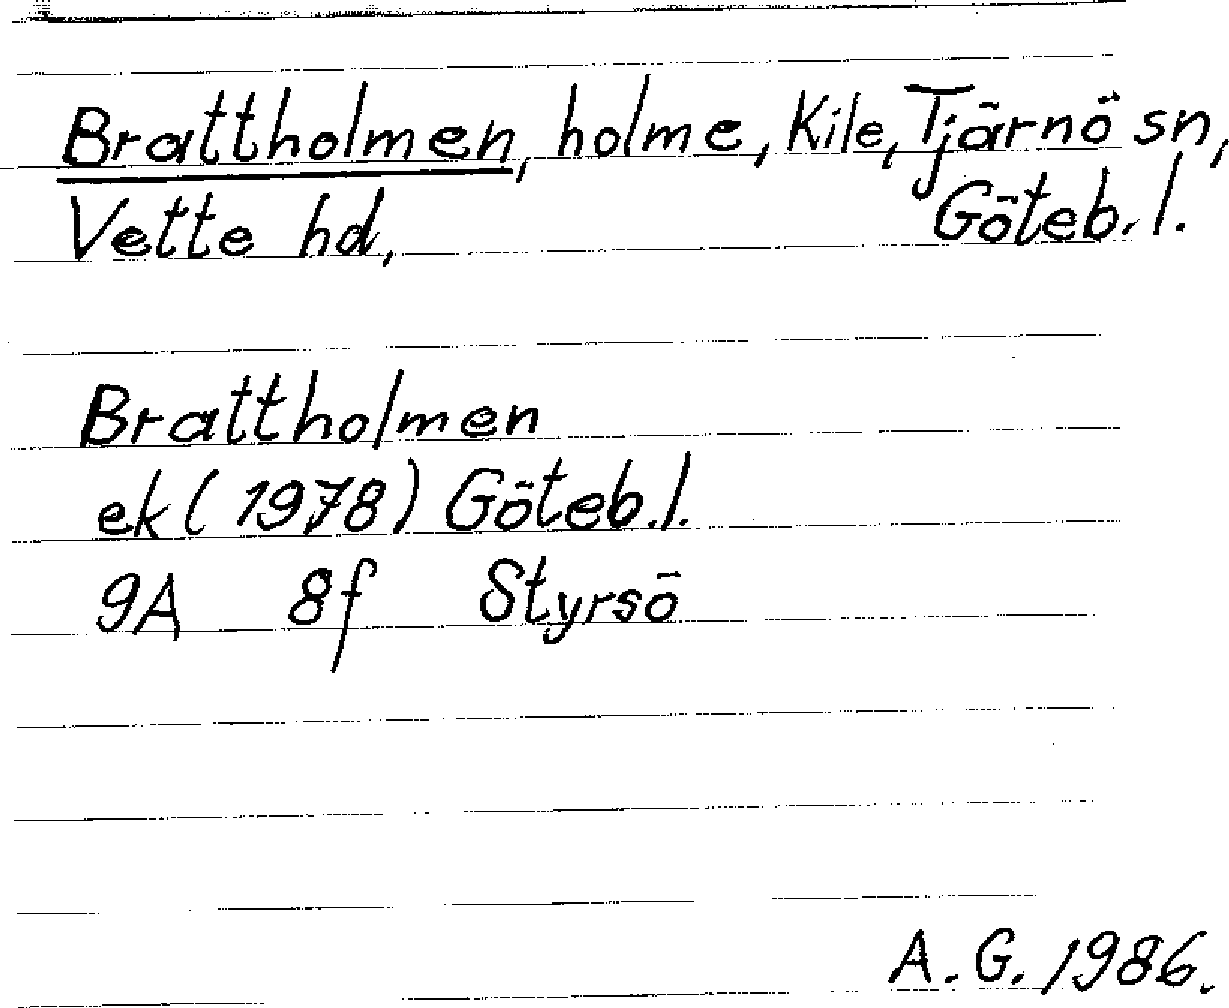 Brattholmen, holme, Kile, Tjärnö sn,
Vette hd, Göteb. l.
Brattholmen
ek (1978) Göteb. l.
9A 8f Styrsö
A. G. 1986.